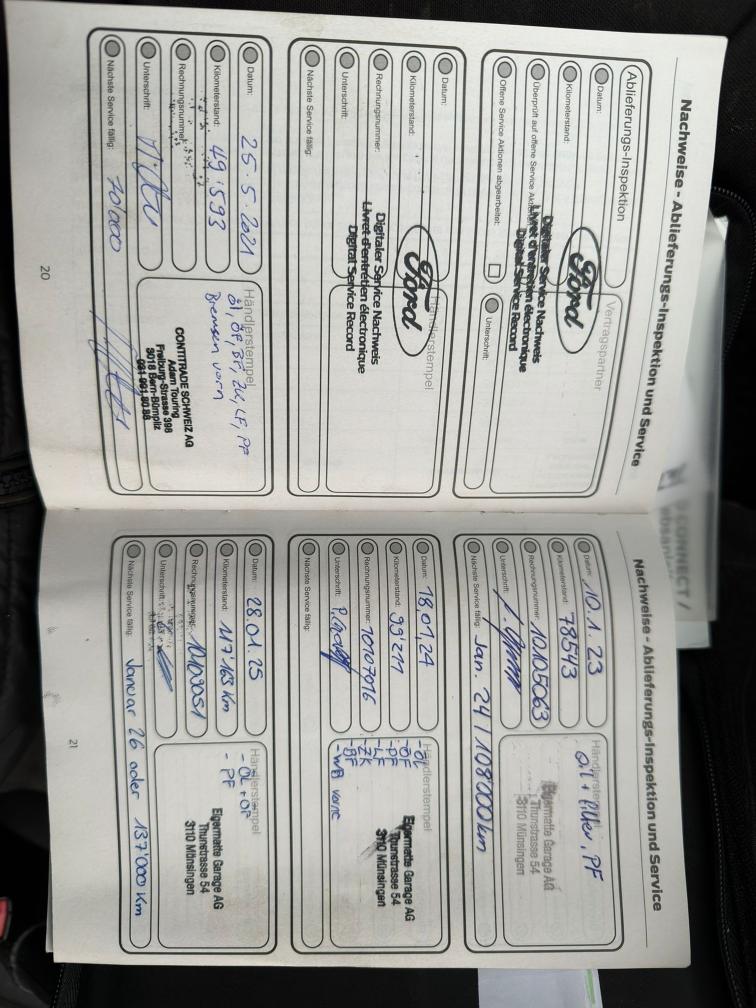 Nachweise - Ablieferungs-Inspektion und Service
Ablieferungs-Inspektion
Datum:
Kilometerstand:
Überprüft auf offene Service Aktionen
Offene Service Aktionen abgearbeitet:
Vertragspartner
Ford
Digitaler Service Nachweis
Livret d'entretien électronique
Digital Service Record
Unterschrift:
Datum:
Kilometerstand:
Rechnungsnummer:
Unterschrift:
Nächste Service fällig:
Händlerstempel
Ford
Digitaler Service Nachweis
Livret d'entretien électronique
Digital Service Record
Datum: 25.5.2021
Kilometerstand: 49'593
Rechnungsnummer:
Unterschrift:
Nächste Service fällig: 70'000
Händlerstempel
Öl, ÖF, BF, ZK, LF, PF
Bremsen vorn
CONTITRADE SCHWEIZ AG
Adam Touring
Freiburg-Strasse 398
3018 Bern-Bümpliz
031 991 80 88
20
Nachweise - Ablieferungs-Inspektion und Service
Datum: 10.1.23
Kilometerstand: 78543
Rechnungsnummer: 10105063
Unterschrift:
Nächste Service fällig: Jan. 24 / 108'000 km
Händlerstempel
Öl + Filter, PF
Eigermatte Garage AG
Thunstrasse 54
3110 Münsingen
Datum: 18.01.24
Kilometerstand: 99'211
Rechnungsnummer: 10107016
Unterschrift:
Nächste Service fällig:
Händlerstempel
-ÖL
-ÖF
-PF
-LF
-ZK
-BF
-WB vorne
Eigermatte Garage AG
Thunstrasse 54
3110 Münsingen
Datum: 28.01.25
Kilometerstand: 117'163 Km
Rechnungsnummer: 10109051
Unterschrift:
Nächste Service fällig: Januar 26 oder 137'000 Km
Händlerstempel
- ÖL + ÖF
- PF
Eigermatte Garage AG
Thunstrasse 54
3110 Münsingen
21